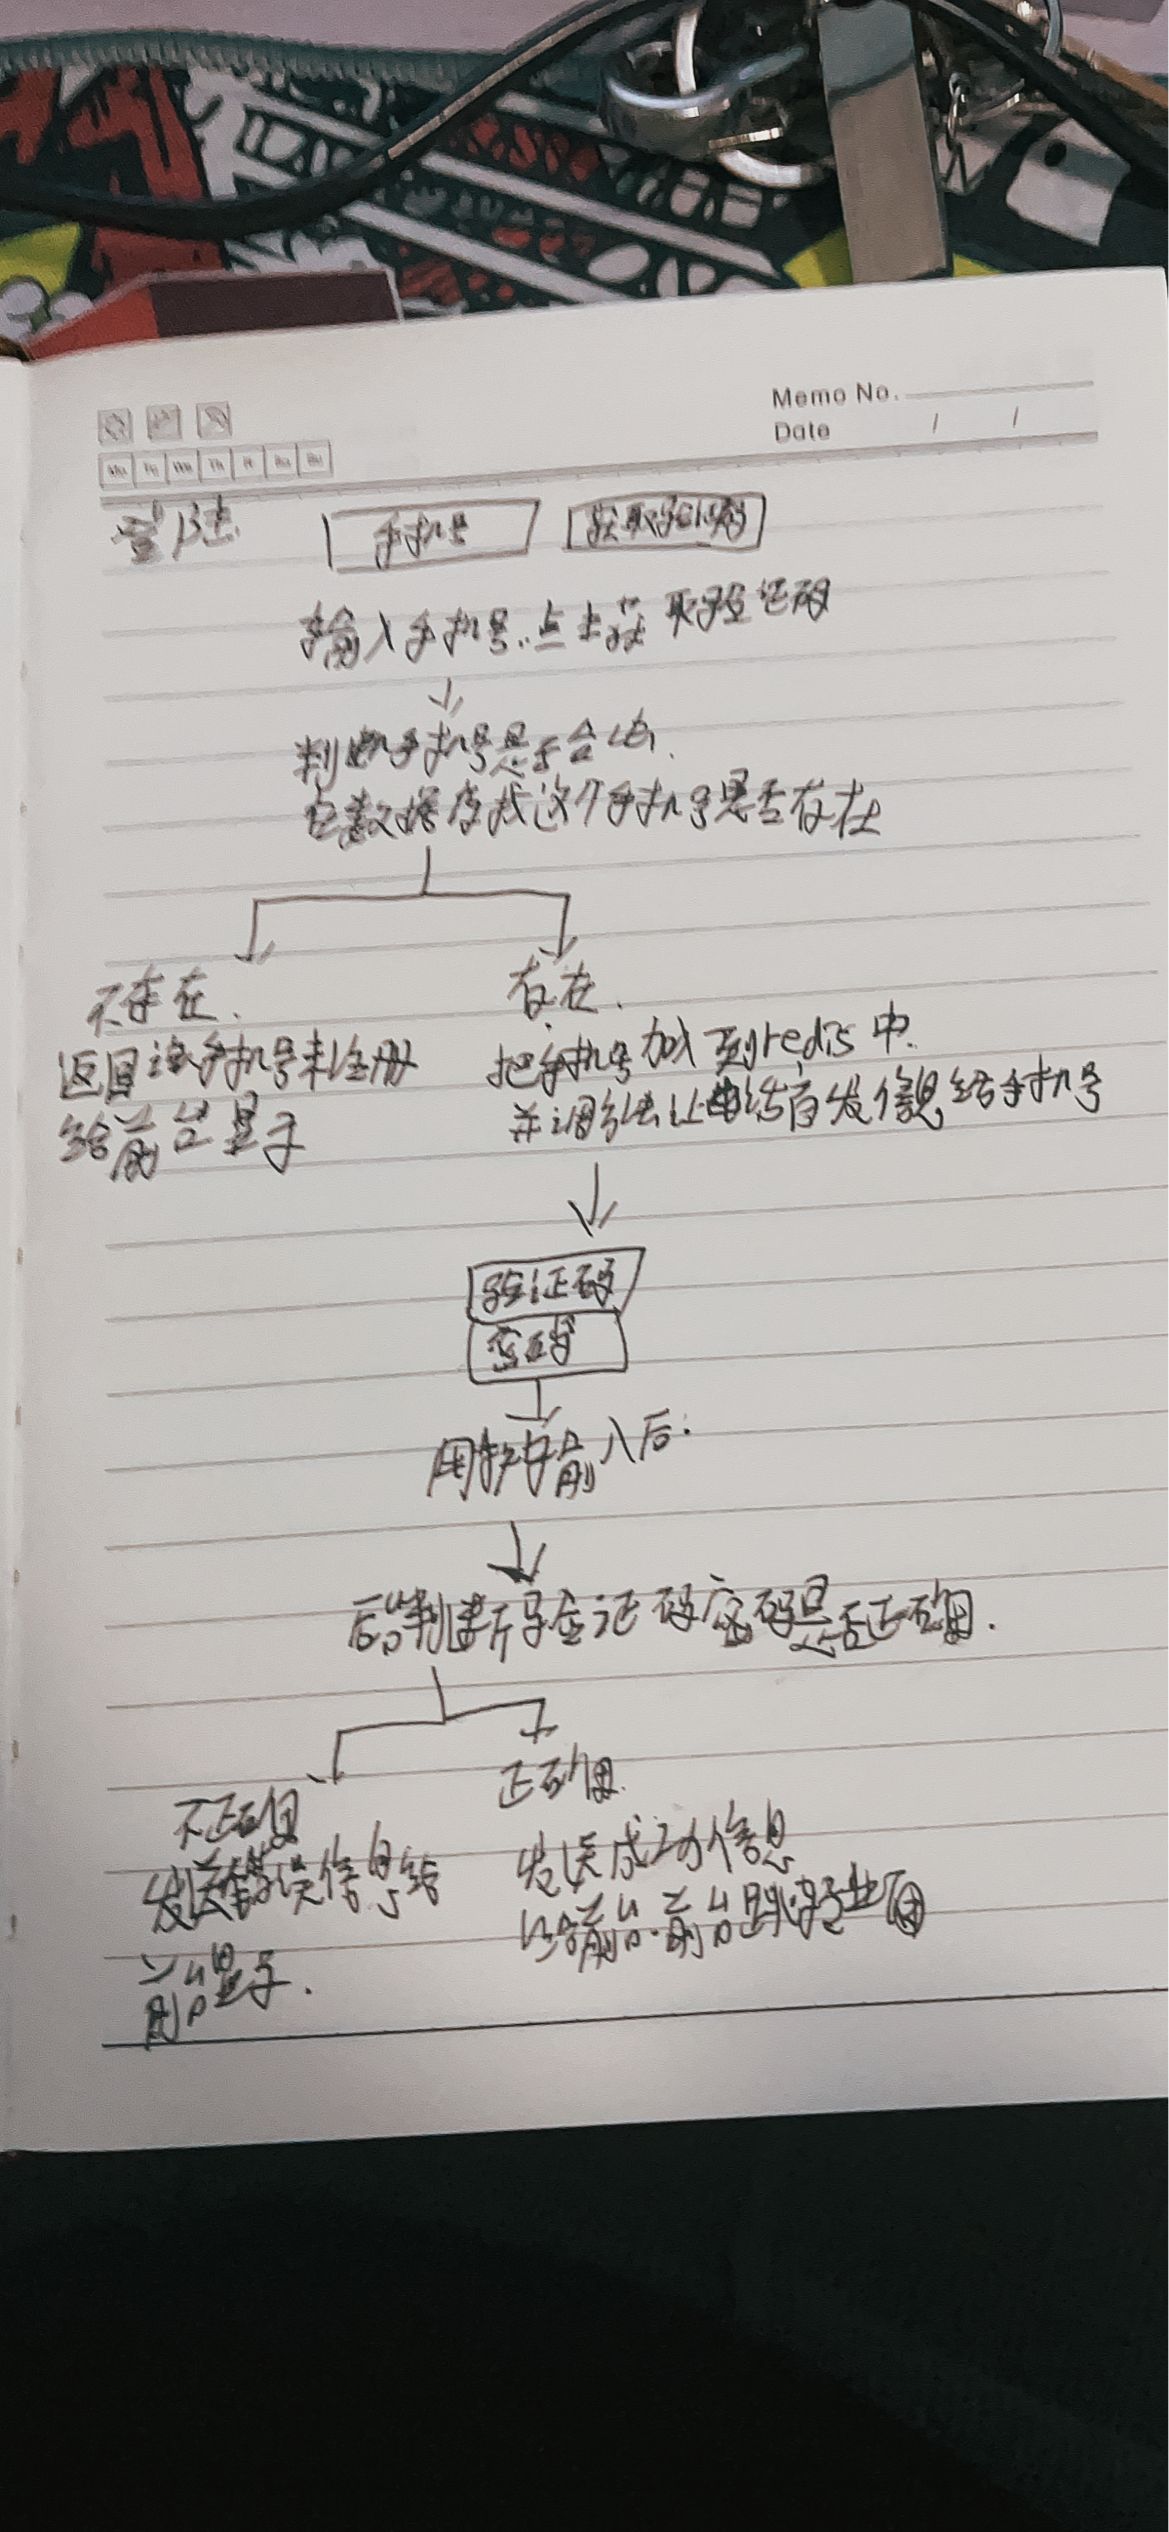 Memo No.
Date / /
Mo Tu We Th Fr Sa Su
手机号 获取验证码
输入手机号.点击获取验证码
判断手机号是否合法.
数据库找这个手机号是否存在
不存在. 存在.
返回该手机号未注册
给前台显示
把手机号加入到redis中.
并调 让 发信息给手机号
验证码
密码
用户输入后:
后台判断验证码密码是否正确.
不正确 正确.
发送错误信息给
前台显示.
发送成功信息
给前台.前台跳 页面